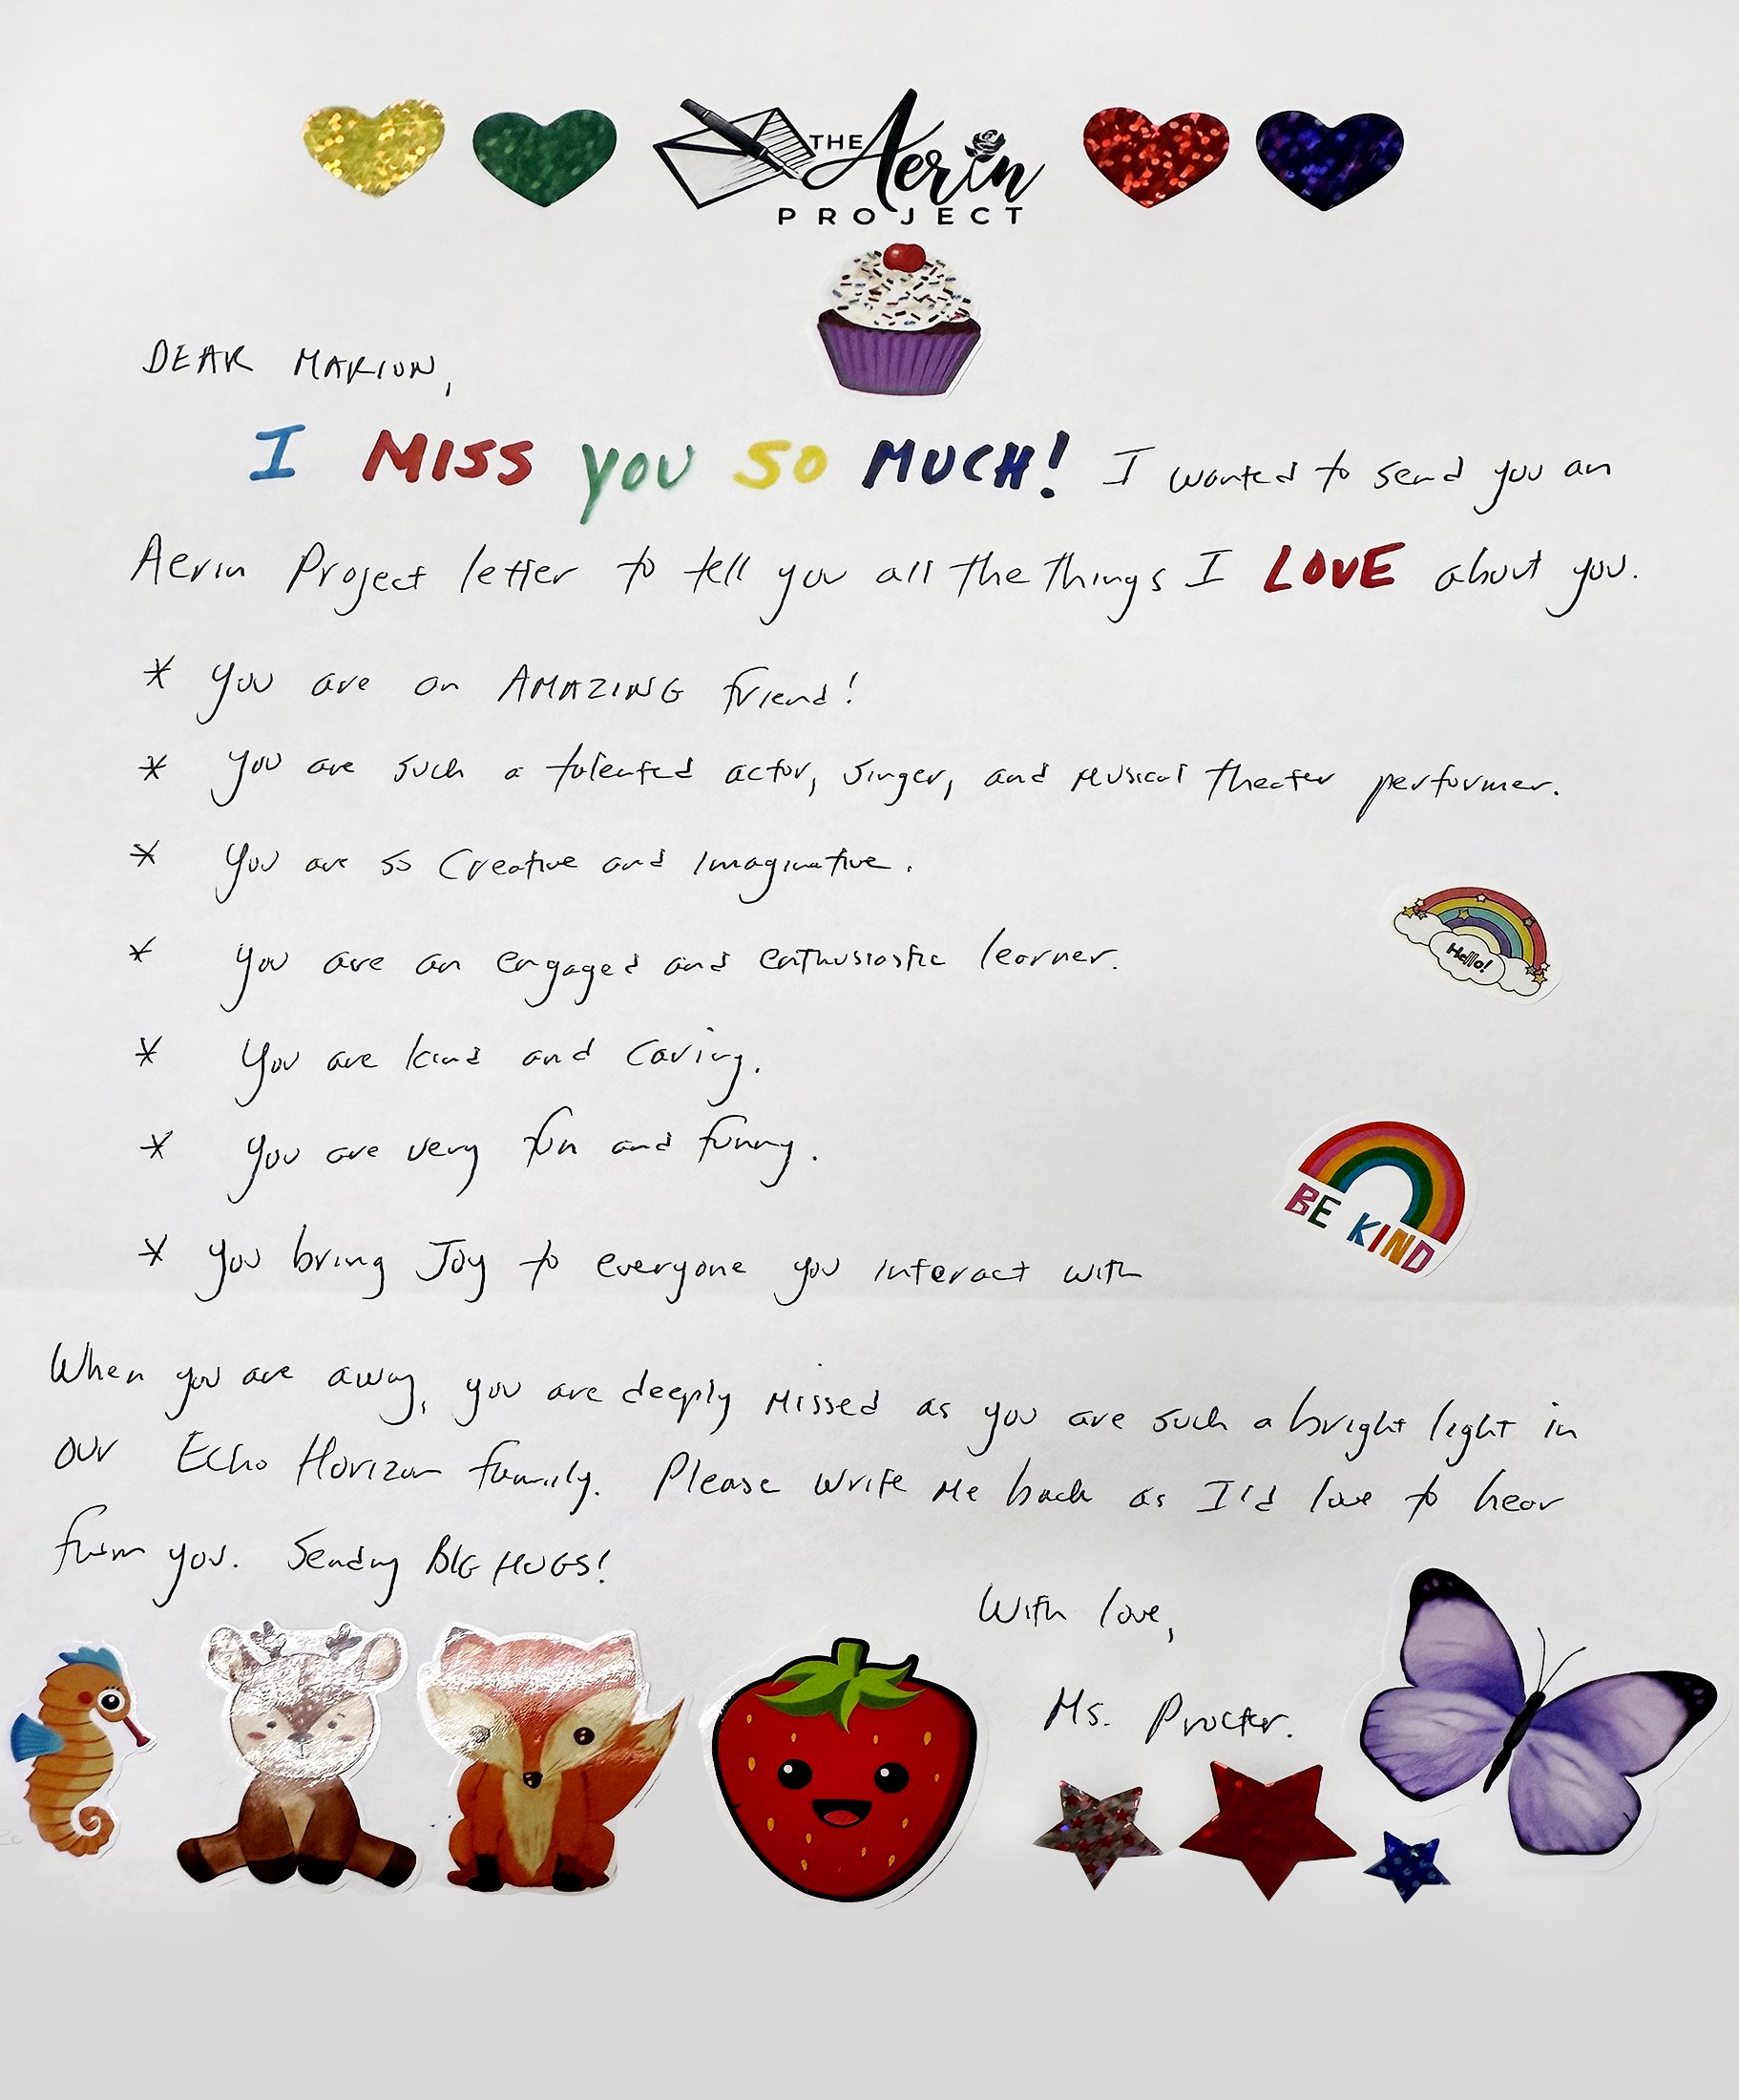 THE Aerin
PROJECT
DEAR MARION,
I MISS YOU SO MUCH! I wanted to send you an
Aerin Project letter to tell you all the things I LOVE about you.
* You are an AMAZING friend!
* You are such a talented actor, singer, and musical theater performer.
* You are so creative and imaginative.
Hello!
* You are an engaged and enthusiastic learner.
* You are kind and caring.
* You are very fun and funny.
BE KIND
* You bring Joy to everyone you interact with
When you are away, you are deeply missed as you are such a bright light in
our Echo Horizon family. Please write me back as I'd love to hear
from you. Sending BIG HUGS!
With love,
Ms. Procter.